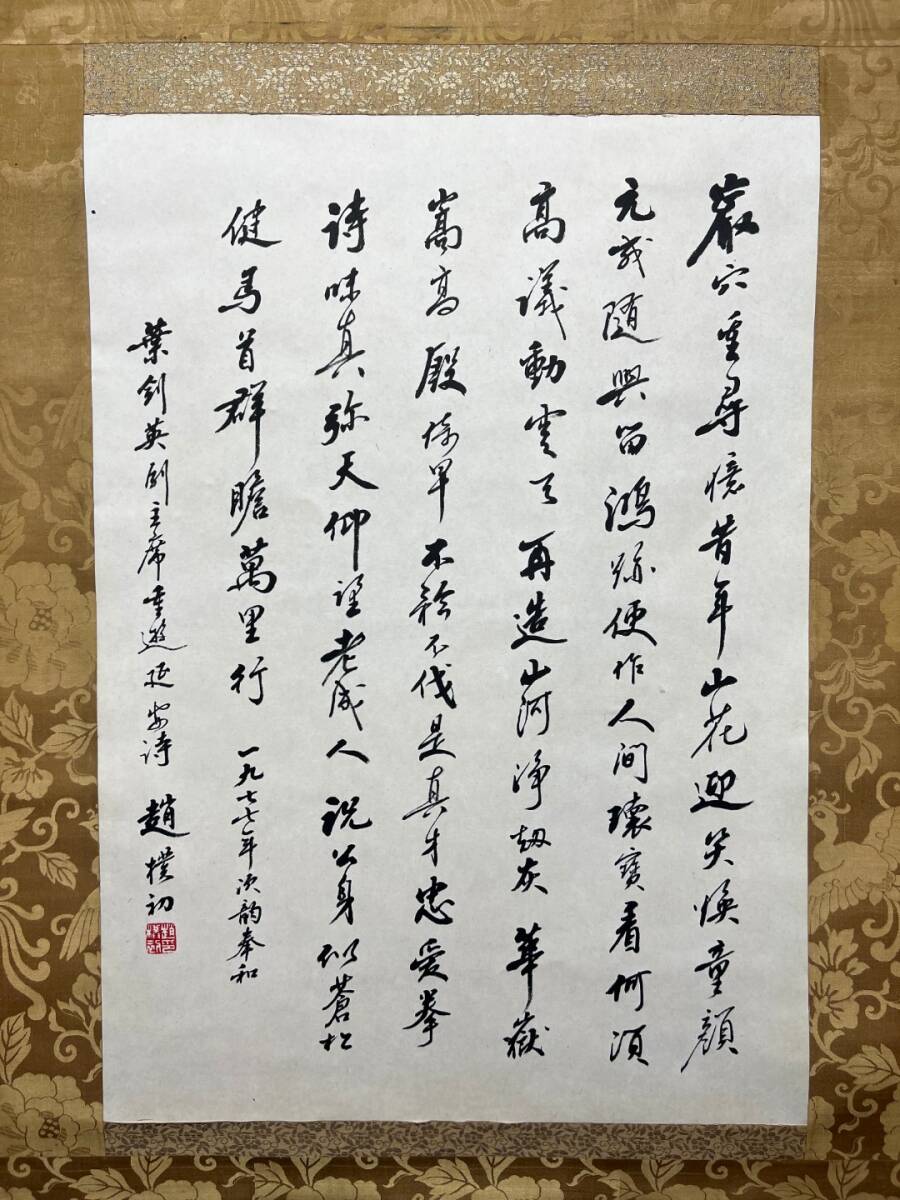 巖穴重尋憶昔年山花迎笑煥童顏
元戎随興留鴻跡便作人间瓌寶看何須
高議動雲天再造山河淨劫灰華嶽
嵩高殿後早不矜不伐是真才忠愛拳
诗味真弥天仰望老成人説公身似蒼松
健馬首群瞻萬里行 一九七七年次韵奉和
葉剑英副主席重遊延安诗 趙樸初